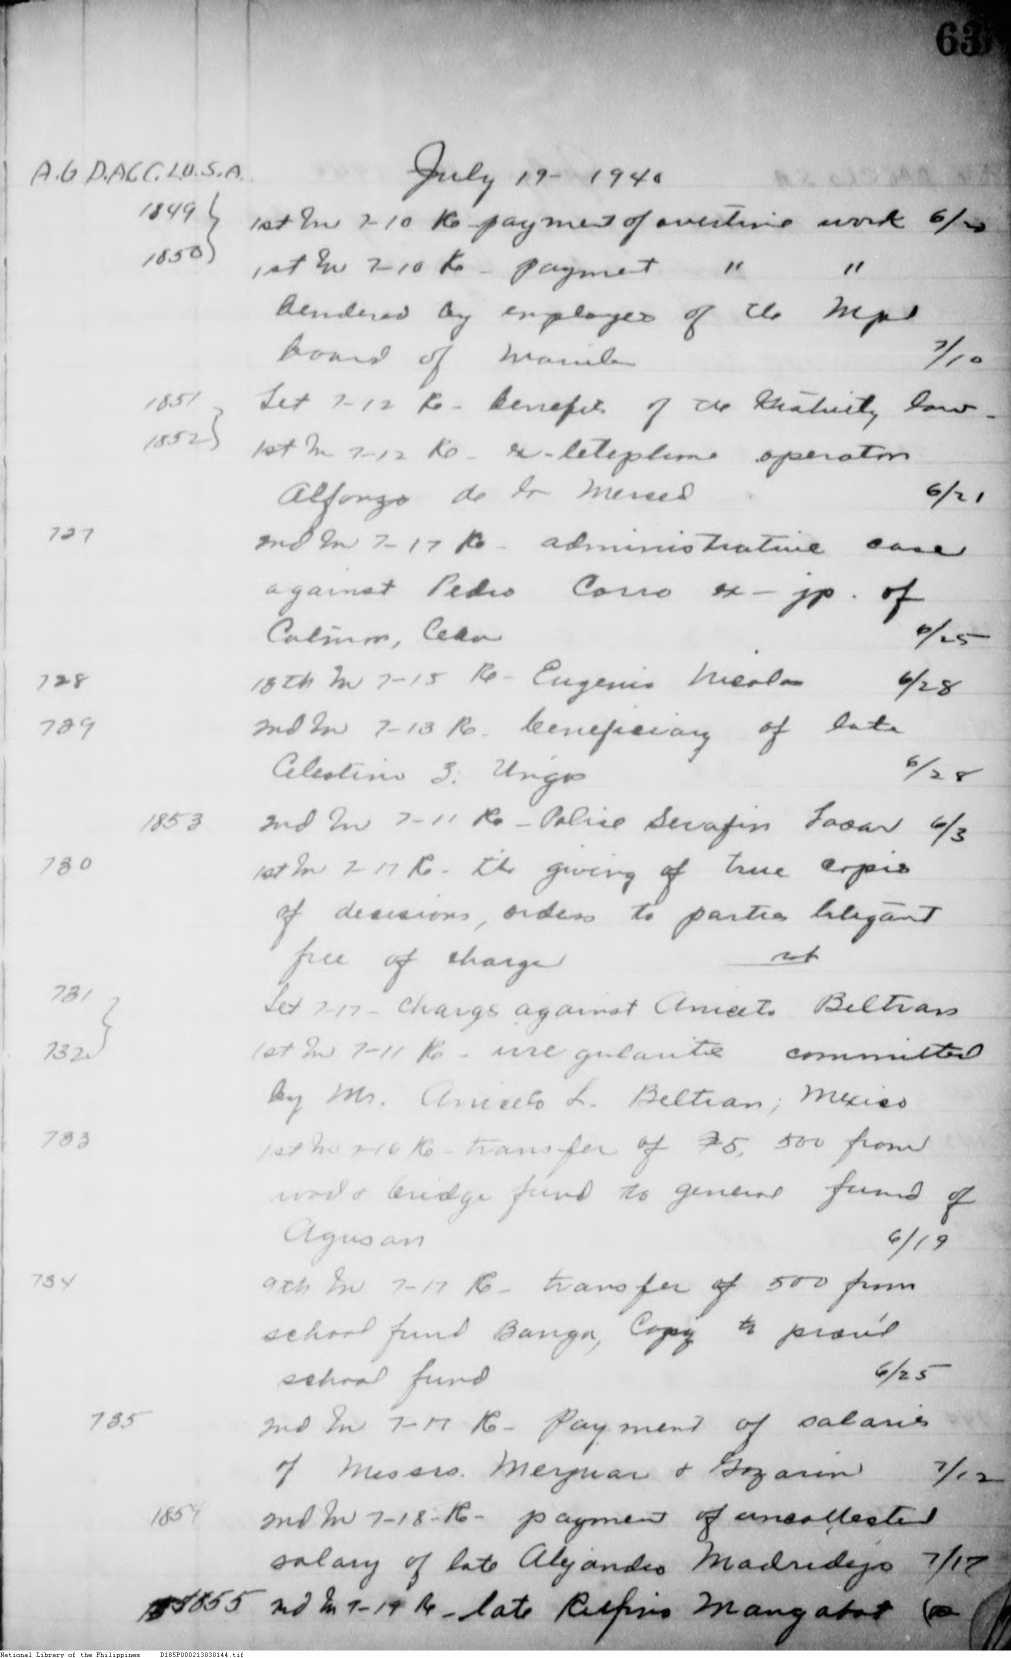 63
July 19 - 1940
1849 1st In 7-10 Re payment of overtime work
1850 1st In 7-10 Re - payment " "
Rendered by employes of the Mpl
board of Manila 7/10
1851 Let 7-12 Re - benefits of the law -
1852 1st In 7-12 Re - ex-telephone operator
Alfonzo de la Merced 6/21
727 2nd In 7-17 Re - administrative case
against Pedro Corro ex-jp. of
Cebu 6/25
728 13th In 7-15 Re - Eugenio Nicolas 6/28
729 2nd In 7-13 Re - beneficiary of late
Celestino 6/28
1853 2nd In 7-11 Re - Police Serafin 6/3
730 1st In 7-17 Re - the giving of true copies
of decisions, orders to parties litigant
free of charge
731 Let 7-17 - charges against Aniceto Beltran
732 1st In 7-11 Re - irregularities committed
by Mr. Aniceto L. Beltran, Mexico
733 1st In 7-16 Re - transfer of ₱5,500 from
road & bridge fund to general fund of
Agusan 6/19
734 9th In 7-17 Re - transfer of 500 from
school fund Banga, Capiz to prov'l
school fund 6/25
735 2nd In 7-17 Re - Payment of salaries
of Messrs. & Gozarin 7/12
1854 2nd In 7-18 - Re - payment of uncollected
salary of late Alejandro Madridejo 7/17
1855 2nd In 7-19 Re - late Rufino Mangabat
National Library of the Philippines D185P000213838144.tif